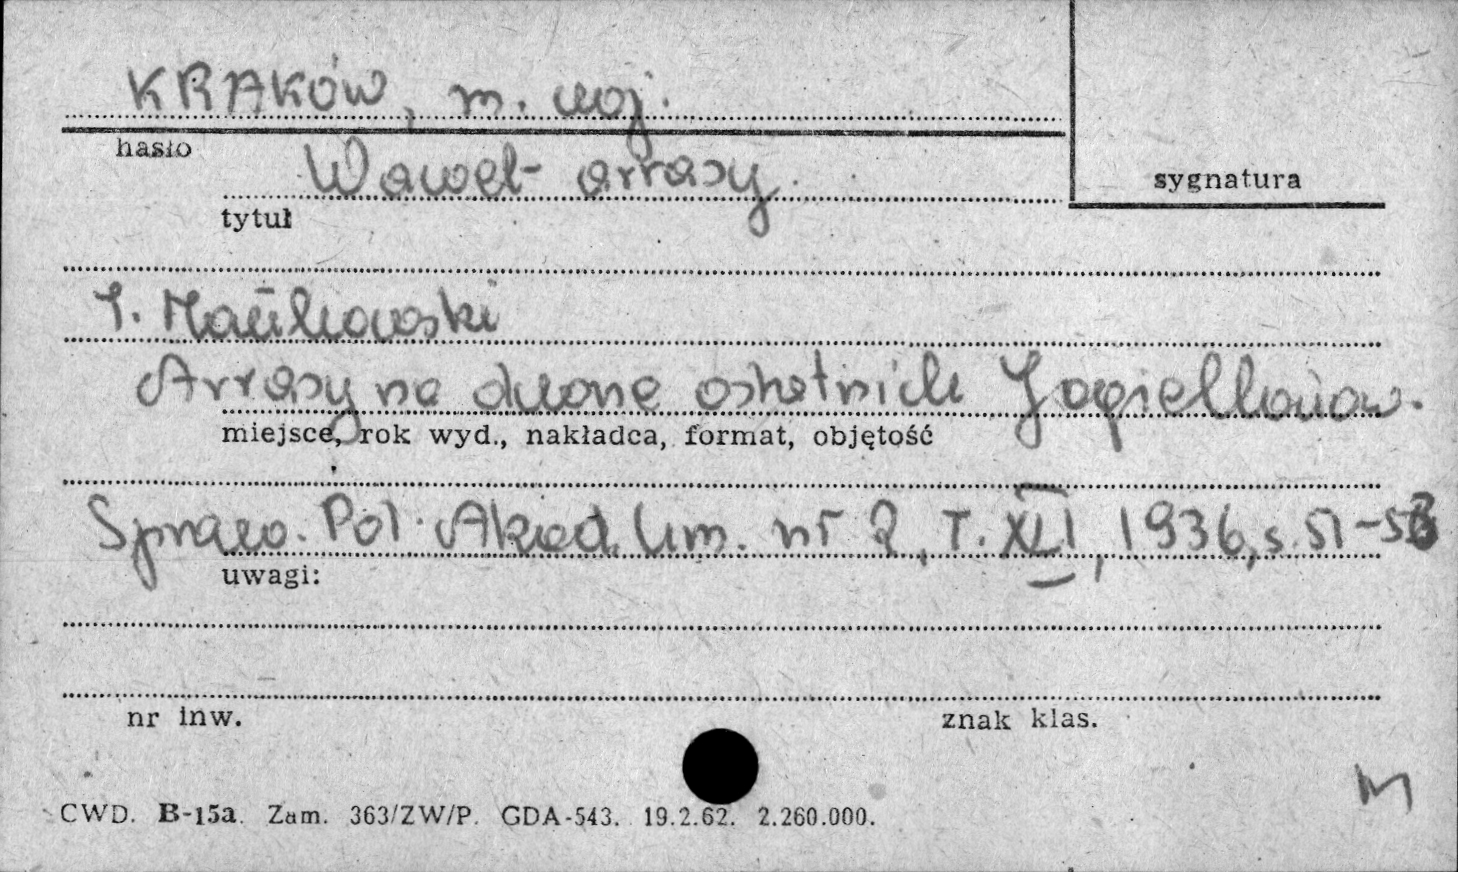 KRAKÓW, m. woj.
hasło
Wawel - arrasy
sygnatura
tytuł
T. Mańkowski
Arrasy na dworze ostatnich Jagiellonów.
miejsce, rok wyd., nakładca, format, objętość
Spraw. Pol. Akad. Um. nr 2, T. XLI, 1936, s. 51-53
uwagi:
nr inw.
znak klas.
M
CWD. B-15a. Zam. 363/ZW/P. GDA-543. 19.2.62. 2.260.000.